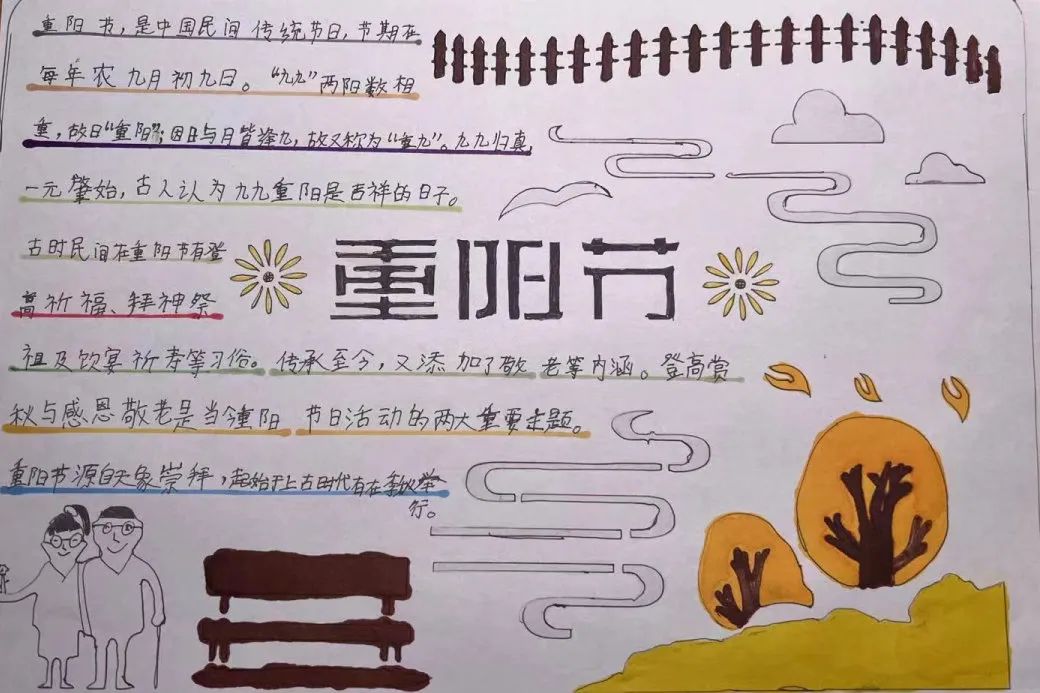 重阳节，是中国民间传统节日，节期在
每年农九月初九日。“九九”两阳数相
重，故曰“重阳”；因日与月皆逢九，故又称为“重九”。九九归真，
一元肇始，古人认为九九重阳是吉祥的日子。
古时民间在重阳节有登
高祈福、拜神祭
重阳节
祖及饮宴祈寿等习俗。传承至今，又添加了敬老等内涵。登高赏
秋与感恩敬老是当今重阳节日活动的两大重要主题。
重阳节源自天象崇拜，起始于上古时代有在季秋举
行。